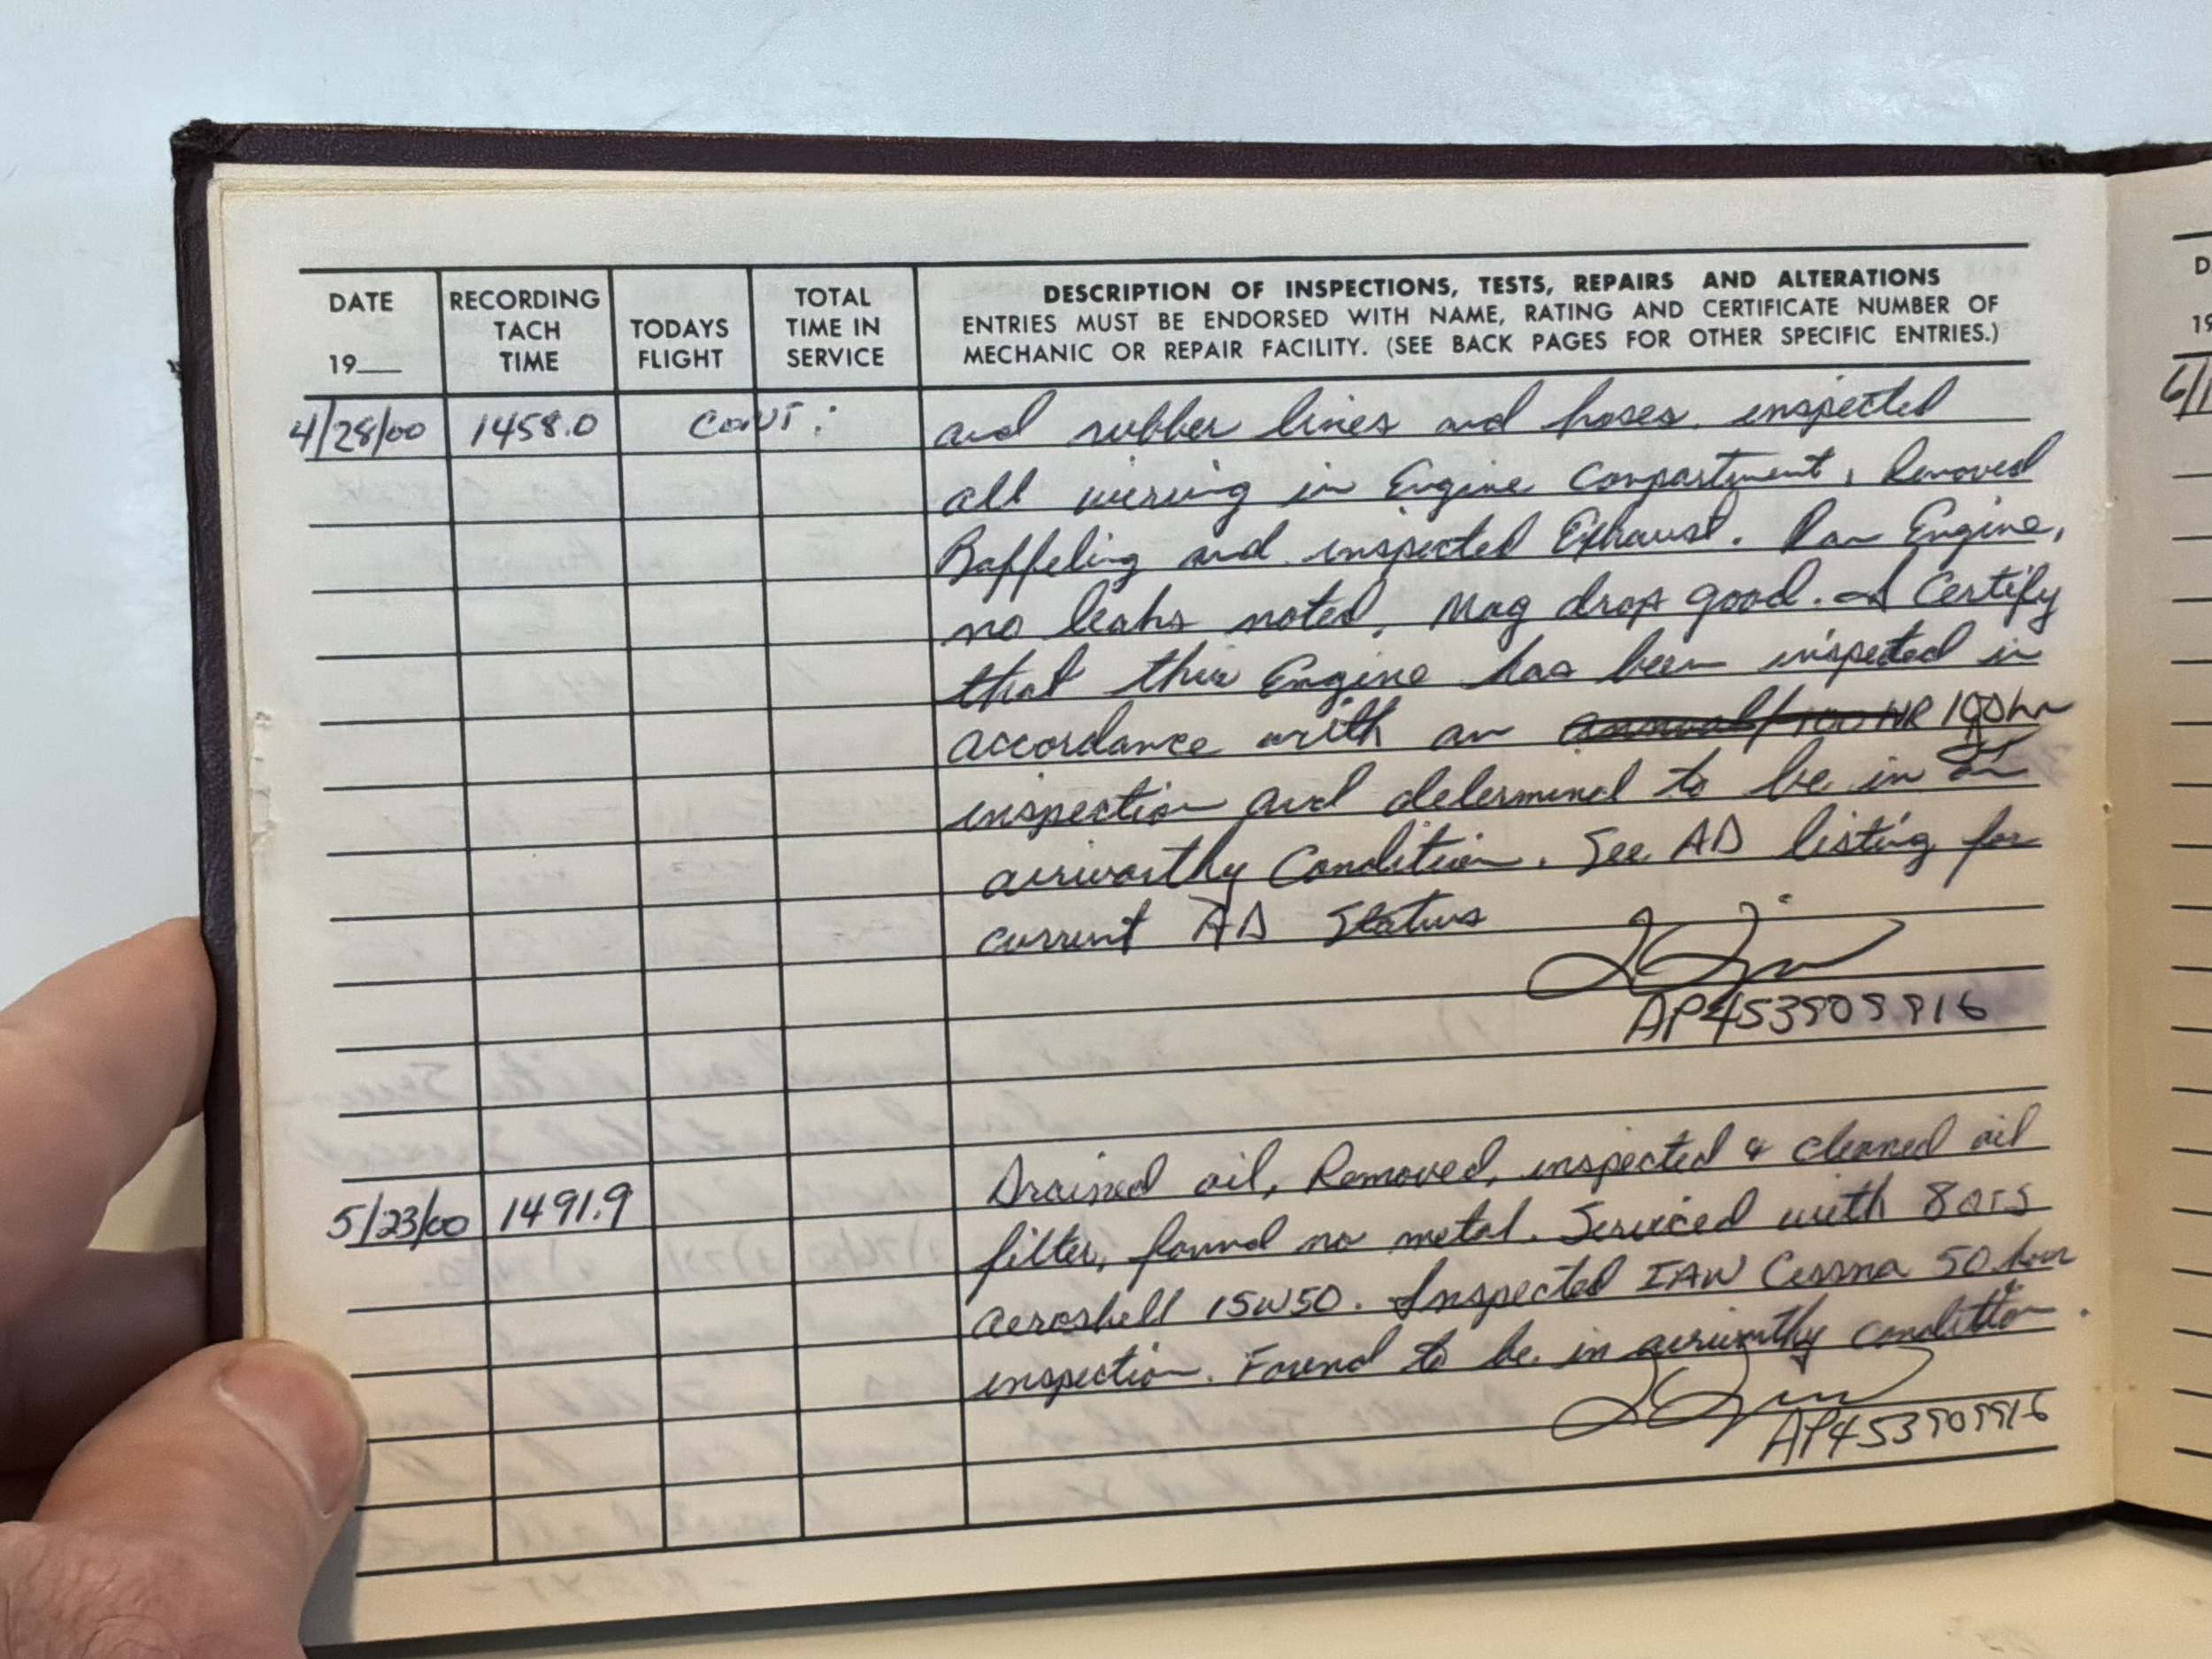 DATE RECORDING TACH TIME TODAYS FLIGHT TOTAL TIME IN SERVICE DESCRIPTION OF INSPECTIONS, TESTS, REPAIRS AND ALTERATIONS
19__ ENTRIES MUST BE ENDORSED WITH NAME, RATING AND CERTIFICATE NUMBER OF
MECHANIC OR REPAIR FACILITY. (SEE BACK PAGES FOR OTHER SPECIFIC ENTRIES.)
4/28/00 1458.0 CONT: and rubber lines and hoses. inspected
all wireing in Engine Compartment, Removed
Baffeling and inspected Exhaust. Ran Engine,
no leaks noted, Mag drop good. I Certify
that this Engine has been inspected in
accordance with an annual/100 HR 100hr
inspection and determined to be in an
airworthy Condition. See AD listing for
current AD Status
AP453909916
Drained oil, Removed, inspected & cleaned oil
5/23/00 1491.9 filter, found no metal. Serviced with 8 QTS
aeroshell 15W50. Inspected IAW Cessna 50 hour
inspection. Found to be in airworthy condition.
AP453909916
D
19
6/1